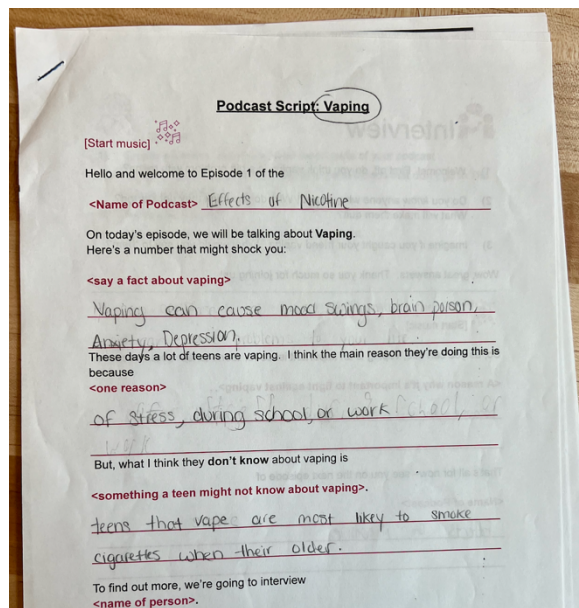 Podcast Script: Vaping
[Start music]
Hello and welcome to Episode 1 of the
<Name of Podcast> Effects of Nicotine
On today's episode, we will be talking about Vaping.
Here's a number that might shock you:
<say a fact about vaping>
Vaping can cause mood swings, brain poison,
Anxiety, Depression.
These days a lot of teens are vaping. I think the main reason they're doing this is
because
<one reason>
of stress, during school, or work
But, what I think they don't know about vaping is
<something a teen might not know about vaping>.
teens that vape are most likely to smoke
cigarettes when their older.
To find out more, we're going to interview
<name of person>.